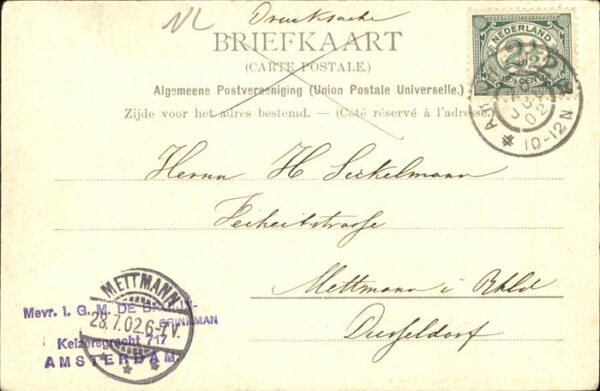 NL
Drucksache
BRIEFKAART
(CARTE POSTALE.)
Algemeene Postvereeniging (Union Postale Universelle.)
Zijde voor het adres bestemd. — (Côté réservé à l'adresse.)
NEDERLAND
2½
CENT
02
10-12N
Herrn H
Mettmann i Rhld
Dusseldorf
METTMANN
28.7.02.6-7V.
Mevr. I. G. M. DE
BRINKMAN
Keizersgracht 717
AMSTERDAM.